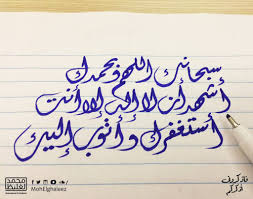 سبحانك اللهم وبحمدك
أشهد أن لا إله إلا أنت
أستغفرك وأتوب إليك
محمد الغليظ
MohElghaleez